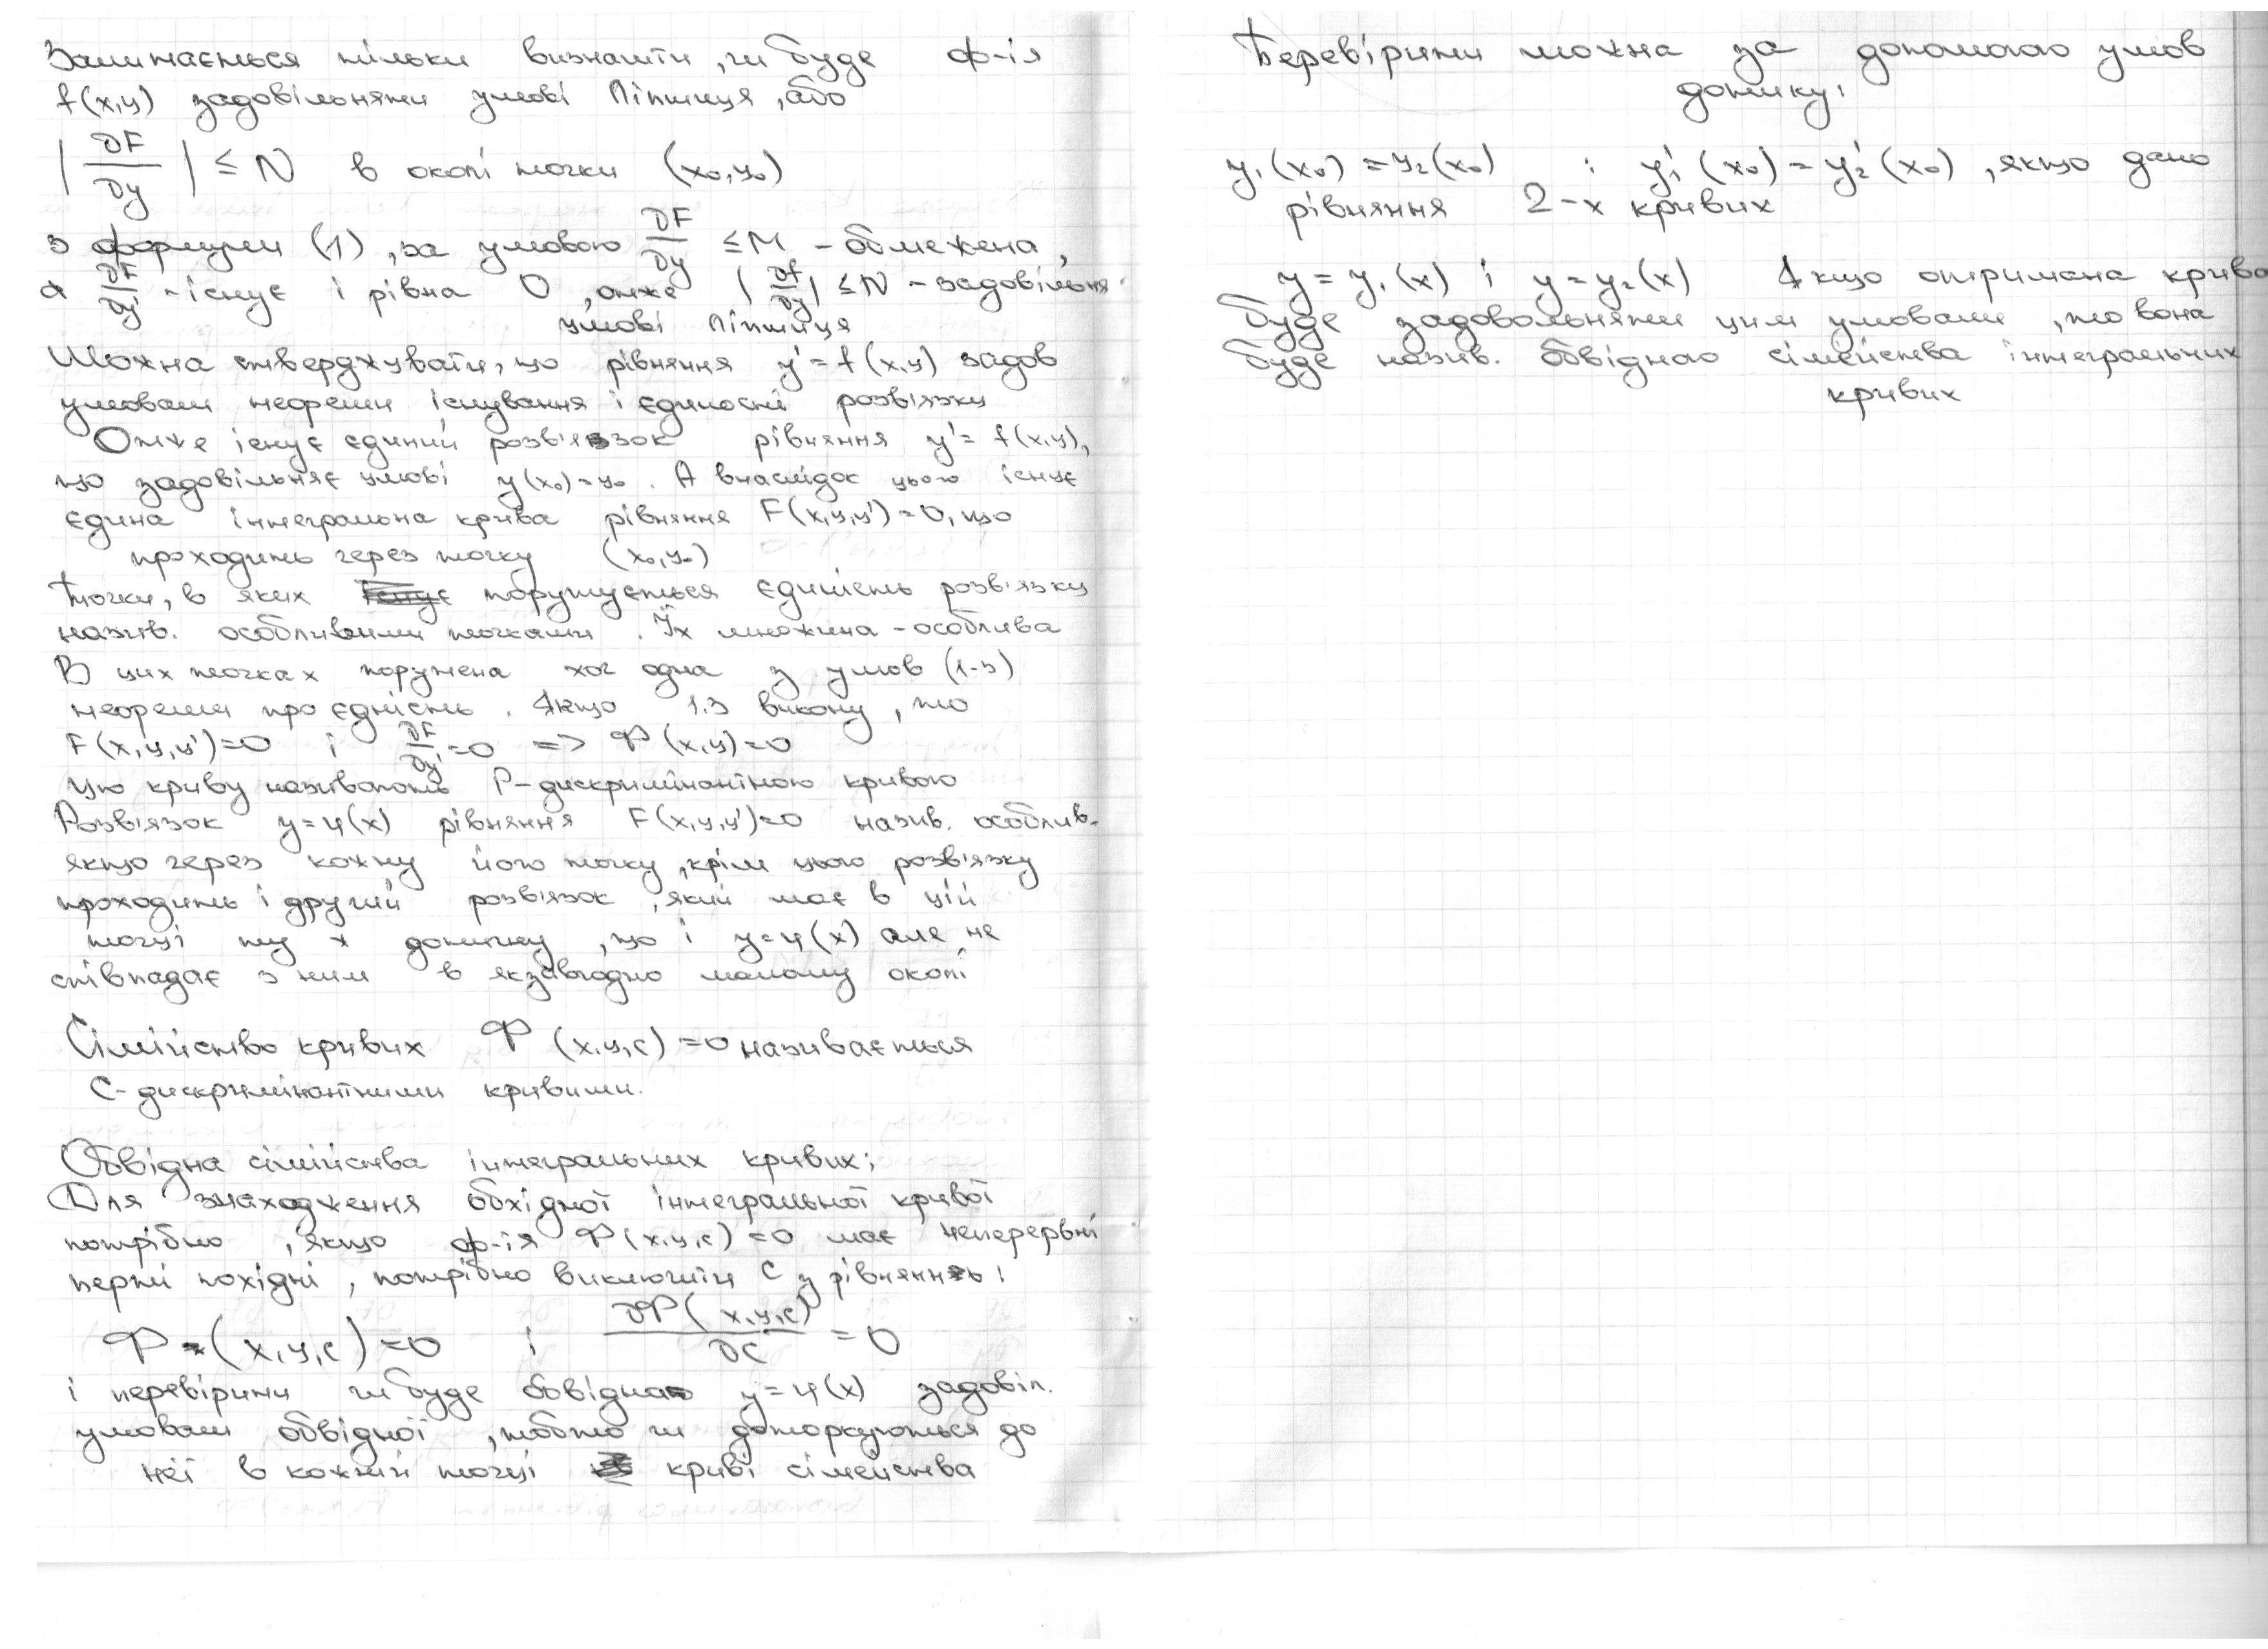 Залишається тільки визначити, чи буде ф-ія
f(x,y) задовільняти умові Ліпшиця, або
|∂F/∂y| ≤ N в околі точки (x₀,y₀)
з формули (1), за умовою ∂F/∂y ≤ M - обмежена,
а ∂F/∂y' - існує і рівна 0, отже |∂f/∂y| ≤ N - задовільня
умові Ліпшиця
Можна стверджувати, що рівняння y' = f(x,y) задов
умовам теореми існування і єдиності розвіязку
Отже існує єдиний розвіязок рівняння y' = f(x,y),
що задовільняє умові y(x₀)=y₀. А внаслідок цього існує
єдина інтегральна крива рівняння F(x,y,y')=0, що
проходить через точку (x₀,y₀)
Точки, в яких порушується єдиність розв'язку
назив. особливими точками. Їх множина - особлива
В цих точках порушена хоч одна з умов (1-3)
теореми про єдність. Якщо 1.3 викону, то
F(x,y,y')=0 і ∂F/∂y'=0 => Φ(x,y)=0
Цю криву називають P-дискримінантною кривою
Розвіязок y=φ(x) рівняння F(x,y,y')=0 назив. особлив-
якщо через кожну його точку, крім цього розвіязку
проходить і другий розвіязок, який має в цій
точці ту ж дотичну, що і y=φ(x) але не
співпадає з ним в якзавгодно малому околі
Сімійство кривих Φ(x,y,c)=0 називається
C-дискримінантними кривими.
Обвідна сімійства інтегральних кривих:
Для знаходження обхідної інтегральної кривої
потрібно, якщо ф-ія Φ(x,y,c)=0 має неперервні
перші похідні, потрібно виключити C з рівняннь:
Φ(x,y,c)=0 і ∂Φ(x,y,c)/∂C = 0
і перевірити чи буде обвідна y=φ(x) задовіл.
умовам обвідної, тобто чи доторкуються до
неї в кожній точці криві сімейства
Перевірити можна за допомогою умов
дотику:
y₁(x₀) = y₂(x₀) і y₁'(x₀) = y₂'(x₀), якщо дано
рівняння 2-х кривих
y = y₁(x) і y = y₂(x) Якщо отримана крива
буде задовольняти цим умовам, то вона
буде назив. обвідною сімейства інтегральних
кривих